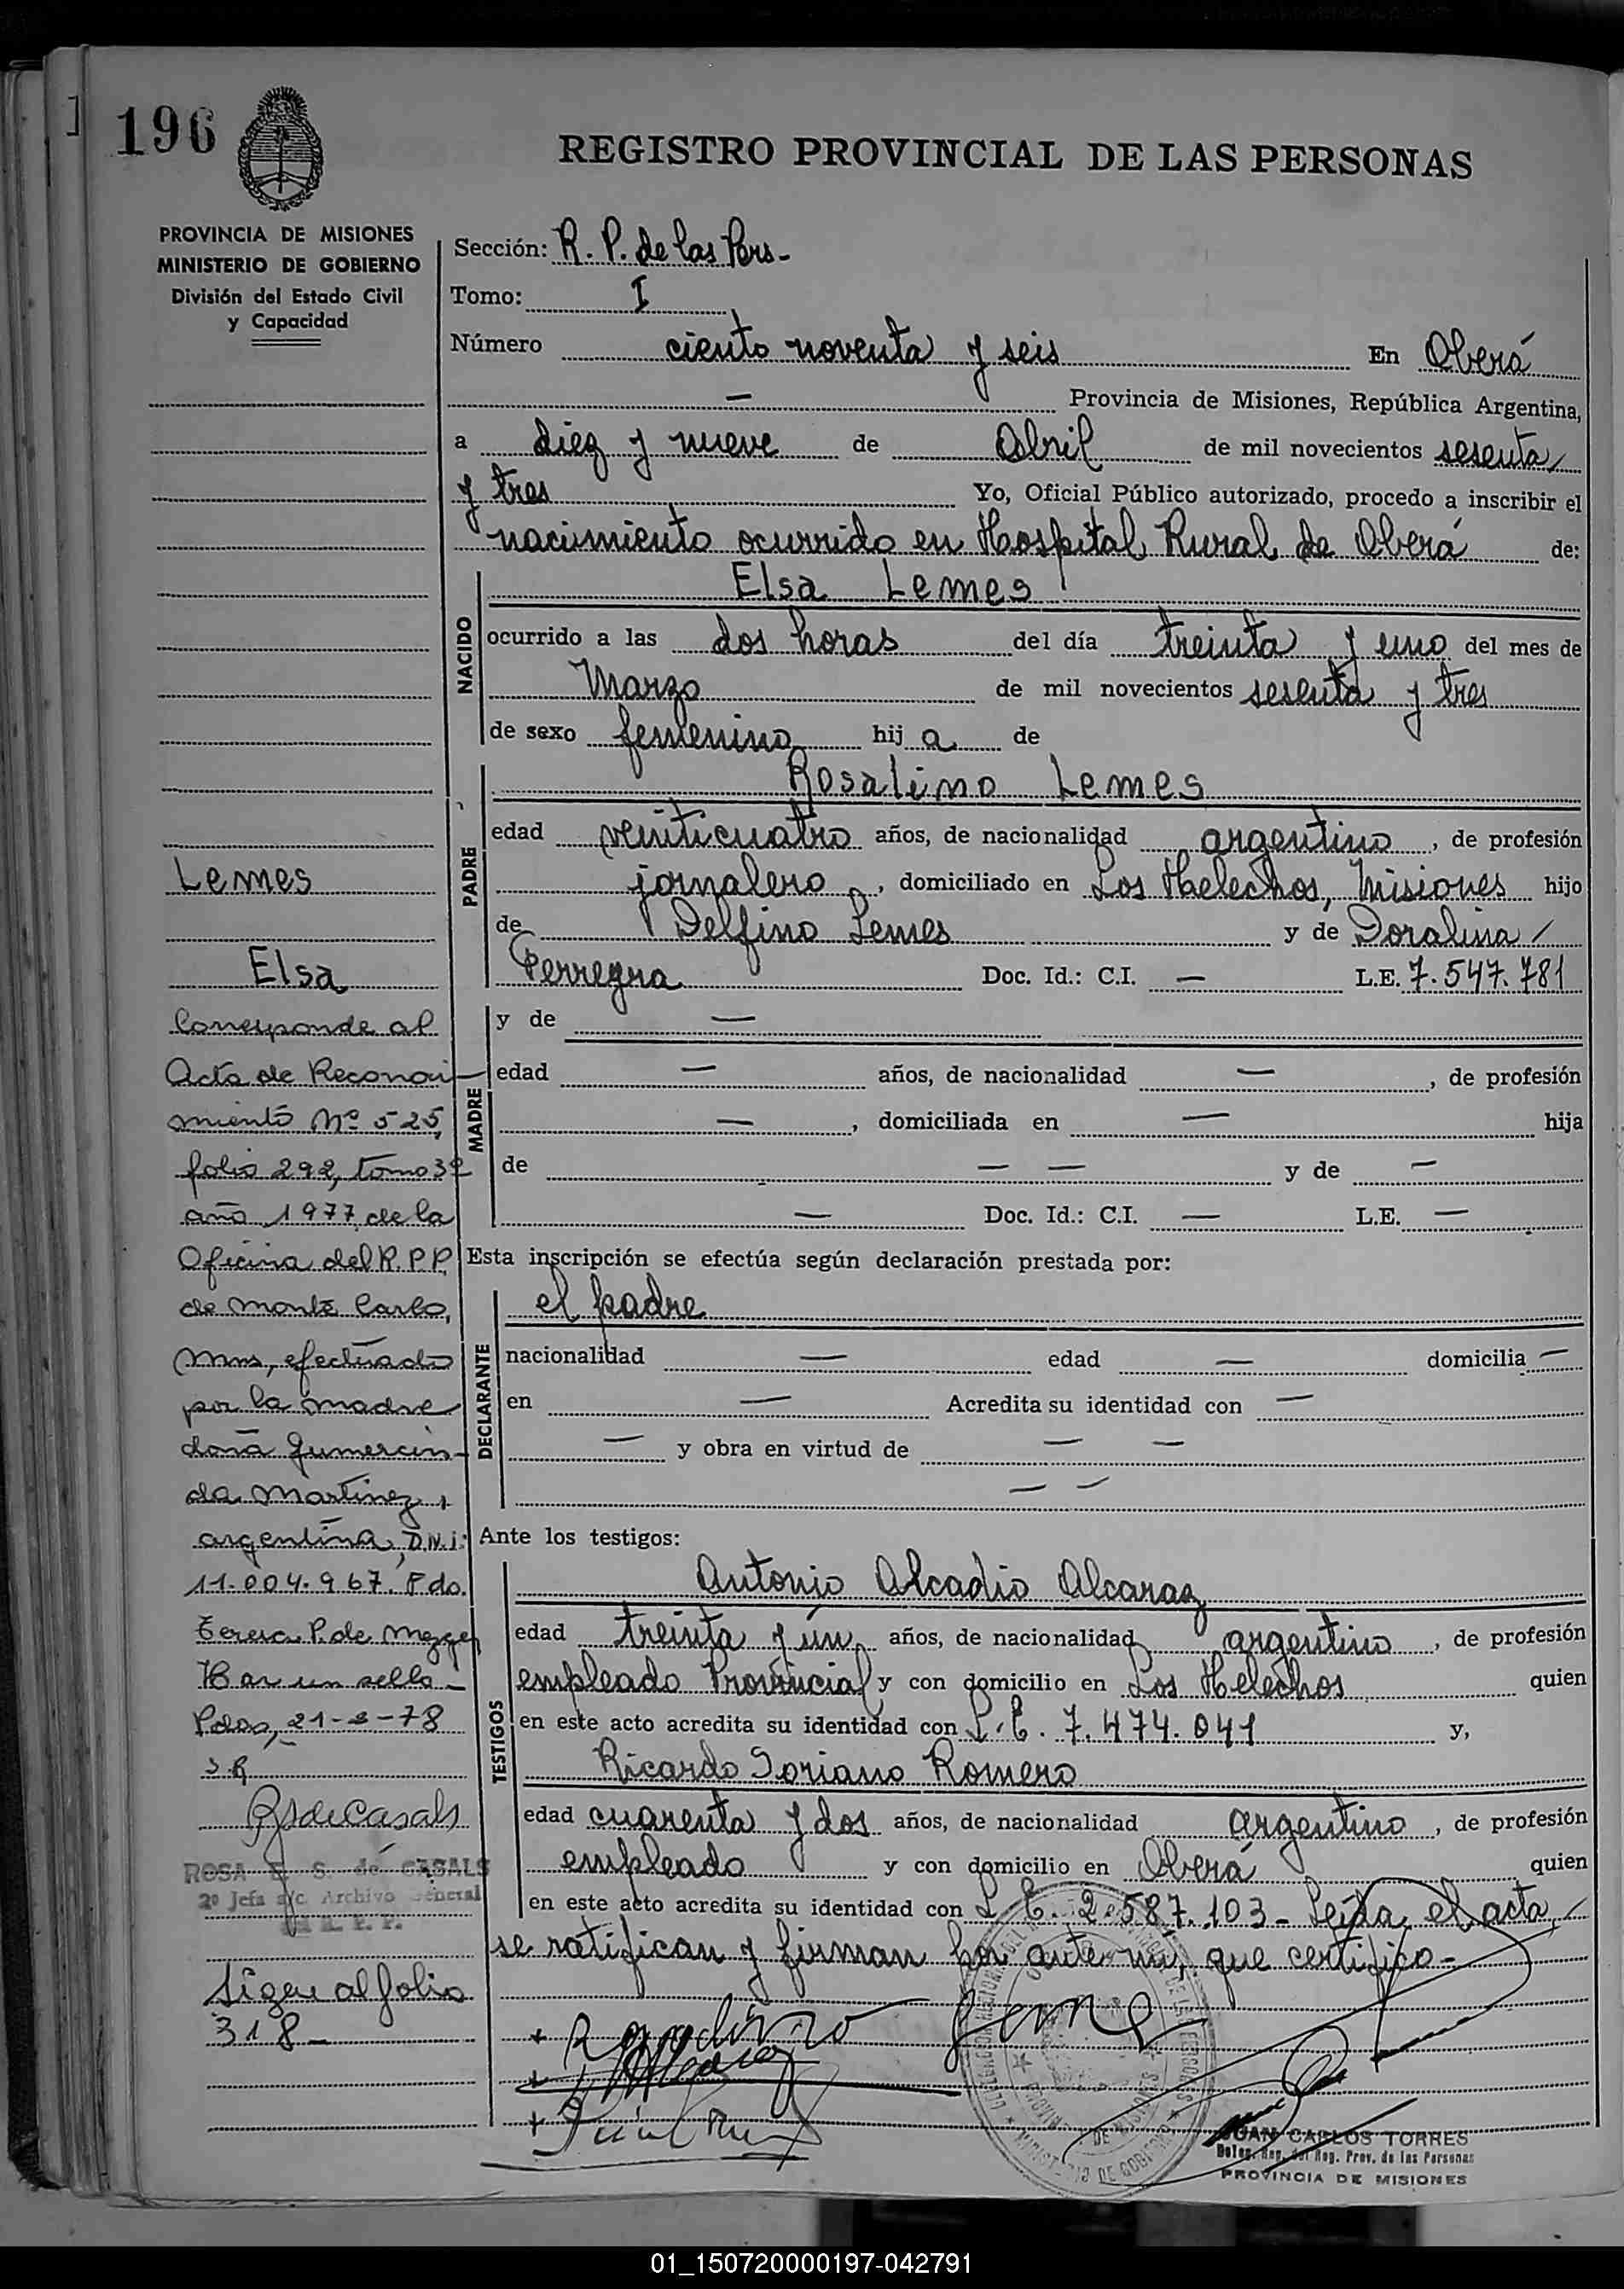 196
REGISTRO PROVINCIAL DE LAS PERSONAS
PROVINCIA DE MISIONES
MINISTERIO DE GOBIERNO
División del Estado Civil
y Capacidad
Sección: R. P. de las Pers-
Tomo: I
Número ciento noventa y seis En Oberá
— Provincia de Misiones, República Argentina,
a diez y nueve de Abril de mil novecientos sesenta
y tres Yo, Oficial Público autorizado, procedo a inscribir el
nacimiento ocurrido en Hospital Rural de Oberá de:
NACIDO
Elsa Lemes
ocurrido a las dos horas del día treinta y uno del mes de
Marzo de mil novecientos sesenta y tres
de sexo femenino hij a de
PADRE
Rosalino Lemes
edad veinticuatro años, de nacionalidad argentino, de profesión
jornalero, domiciliado en Los Helechos, Misiones hijo
de Delfino Lemes y de Doralina /
Perregra Doc. Id.: C.I. — L.E. 7.547.781
MADRE
y de —
edad — años, de nacionalidad —, de profesión
—, domiciliada en — hija
de — — y de —
— Doc. Id.: C.I. — L.E. —
Esta inscripción se efectúa según declaración prestada por:
DECLARANTE
el padre
nacionalidad — edad — domicilia —
en — Acredita su identidad con —
— y obra en virtud de — —
— —
Ante los testigos:
TESTIGOS
Antonio Alcadio Alcaraz
edad treinta y ún años, de nacionalidad argentino, de profesión
empleado Provincial y con domicilio en Los Helechos quien
en este acto acredita su identidad con L.E. 7.474.041 y,
Ricardo Soriano Romero
edad cuarenta y dos años, de nacionalidad argentino, de profesión
empleado y con domicilio en Oberá quien
en este acto acredita su identidad con L.E. 2.587.103- Leída el acta,
se ratifican y firman por ante mí, que certifico-
Lemes
Elsa
Corresponde al
Acta de Reconoci-
miento Nº 525,
folio 292, tomo 3º
año 1977 de la
Oficina del R.P.P.
de Monte Carlo,
Mns, efectuado
por la madre
doña Gumercin-
da Martinez,
argentina, D.N.i:
11.004.967. Fdo.
P. de
Hay un sello-
Pdas, 21-2-78
ROSA E. S. de CASALS
2º Jefa a/c. Archivo General
R. P. P.
Sigue al folio
318-
JUAN CARLOS TORRES
Deleg. Reg. del Reg. Prov. de las Personas
PROVINCIA DE MISIONES
01_150720000197-042791